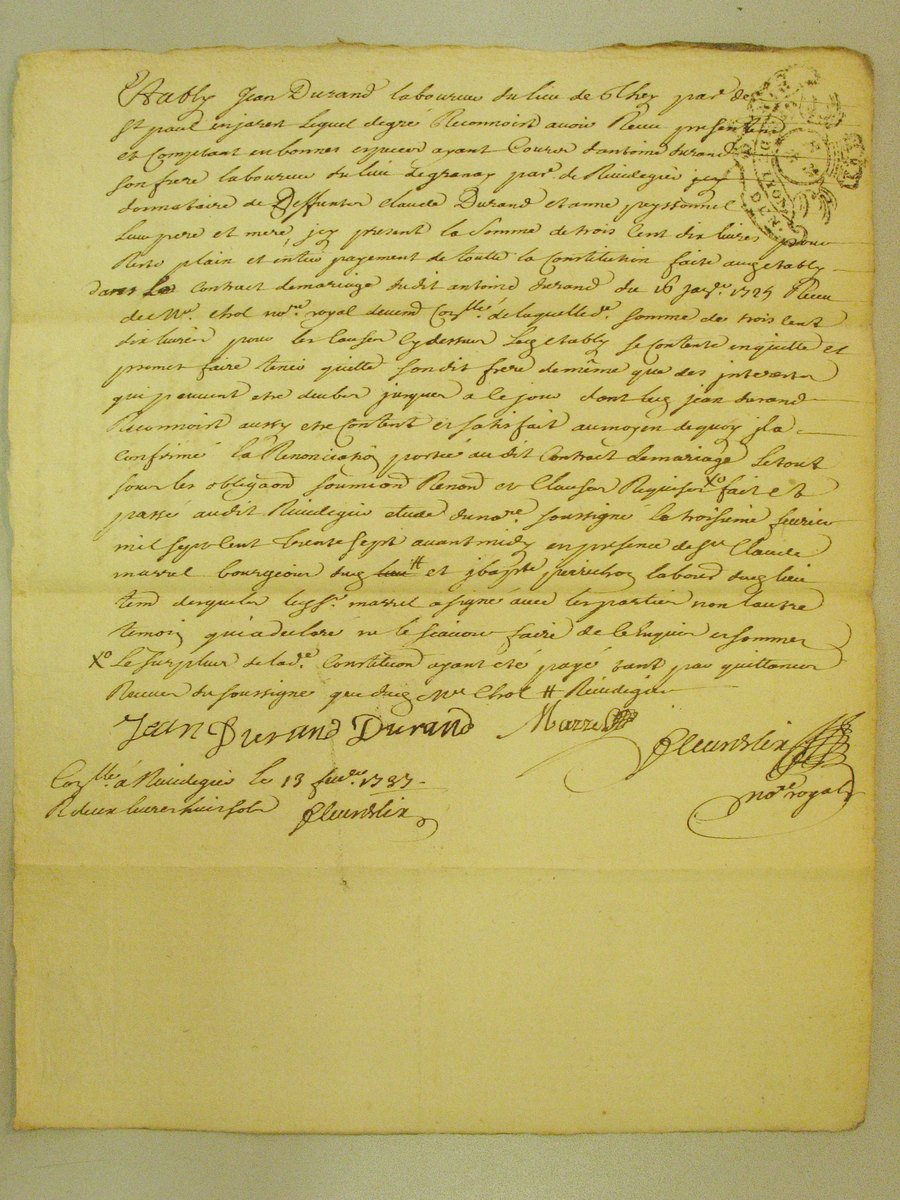 Estably Jean Durand laboureur du lieu de Chez par.e de
St paul enjarest lequel degré Reconnoist avoir Receu presentement
et Comptant en bonnes especes ayant Cours d'antoine durand
son frere laboureur du lieu Legranay par.e de Rivedegier jcy
donnataire de Deffunts Claude Durand et anne peyssonnel
Leur pere et mere jcy present la Somme de trois Cent dix livres pour
Reste plain et entier payement de toutte la Constitution faite audetably
dans Le Contract demariage dudit antoine durand du 16 janv.r 1725 Receu
de Me. Chol no.re royal devend Con.llé delaquelle d.e somme de trois Cent
dix livres pour les Causes Cydessus Led etably se Contente enquitte et
promet faire tenir quitte sondit frere demême que des interests
qui peuvent etre deubs jusques a Ce jour dont led jean durand
Reconnoist aussy etre Content et satisfait au moyen dequoy jla
Confirmé la Renonciaon portée audit Contract demariage Letout
sous les obligaons soumions Renons et Clauses Requises Xo fait et
passé audit Rivedegier etude dunore. soussigné le troisieme fevrier
mil sept Cent trente Sept avant midy en presence de Sr Claude
marrel bourgeois dud lieu # et jbapte perrichon labour dud lieu
tem desquels led Sr. marrel a signé avec les parties non lautre
temoin quia declaré ne le scavoir faire de Ce enquis et sommés
Xo Le Surplus de lade. Constituon ayant eté payé tant par quittances
Receues du soussigné que dud Me Chol # Rivedegier
Jean Durand Durand Marrel
fleurdelix
no.re royal
Con.llé à Rivedegier le 13 fevr.er 1737
R deux livres huit sols fleurdelix